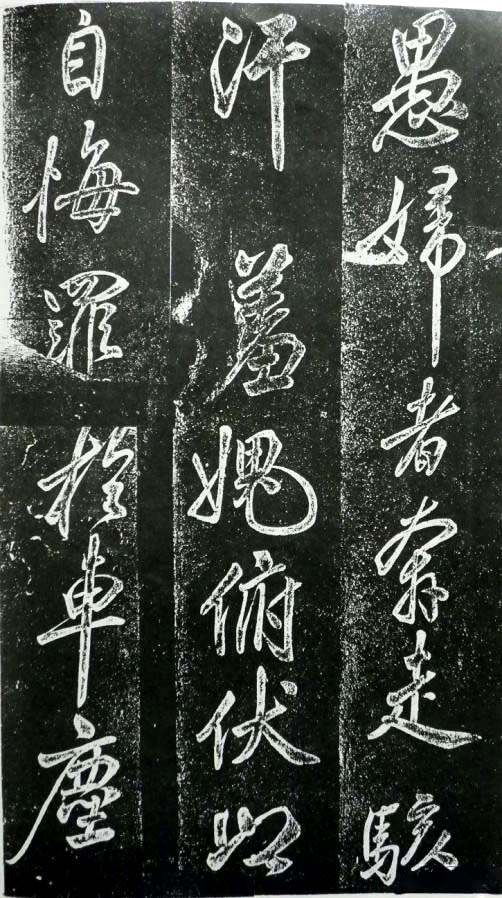 愚婦者奔走駭
汗羞媿俯伏以
自悔罪於車塵